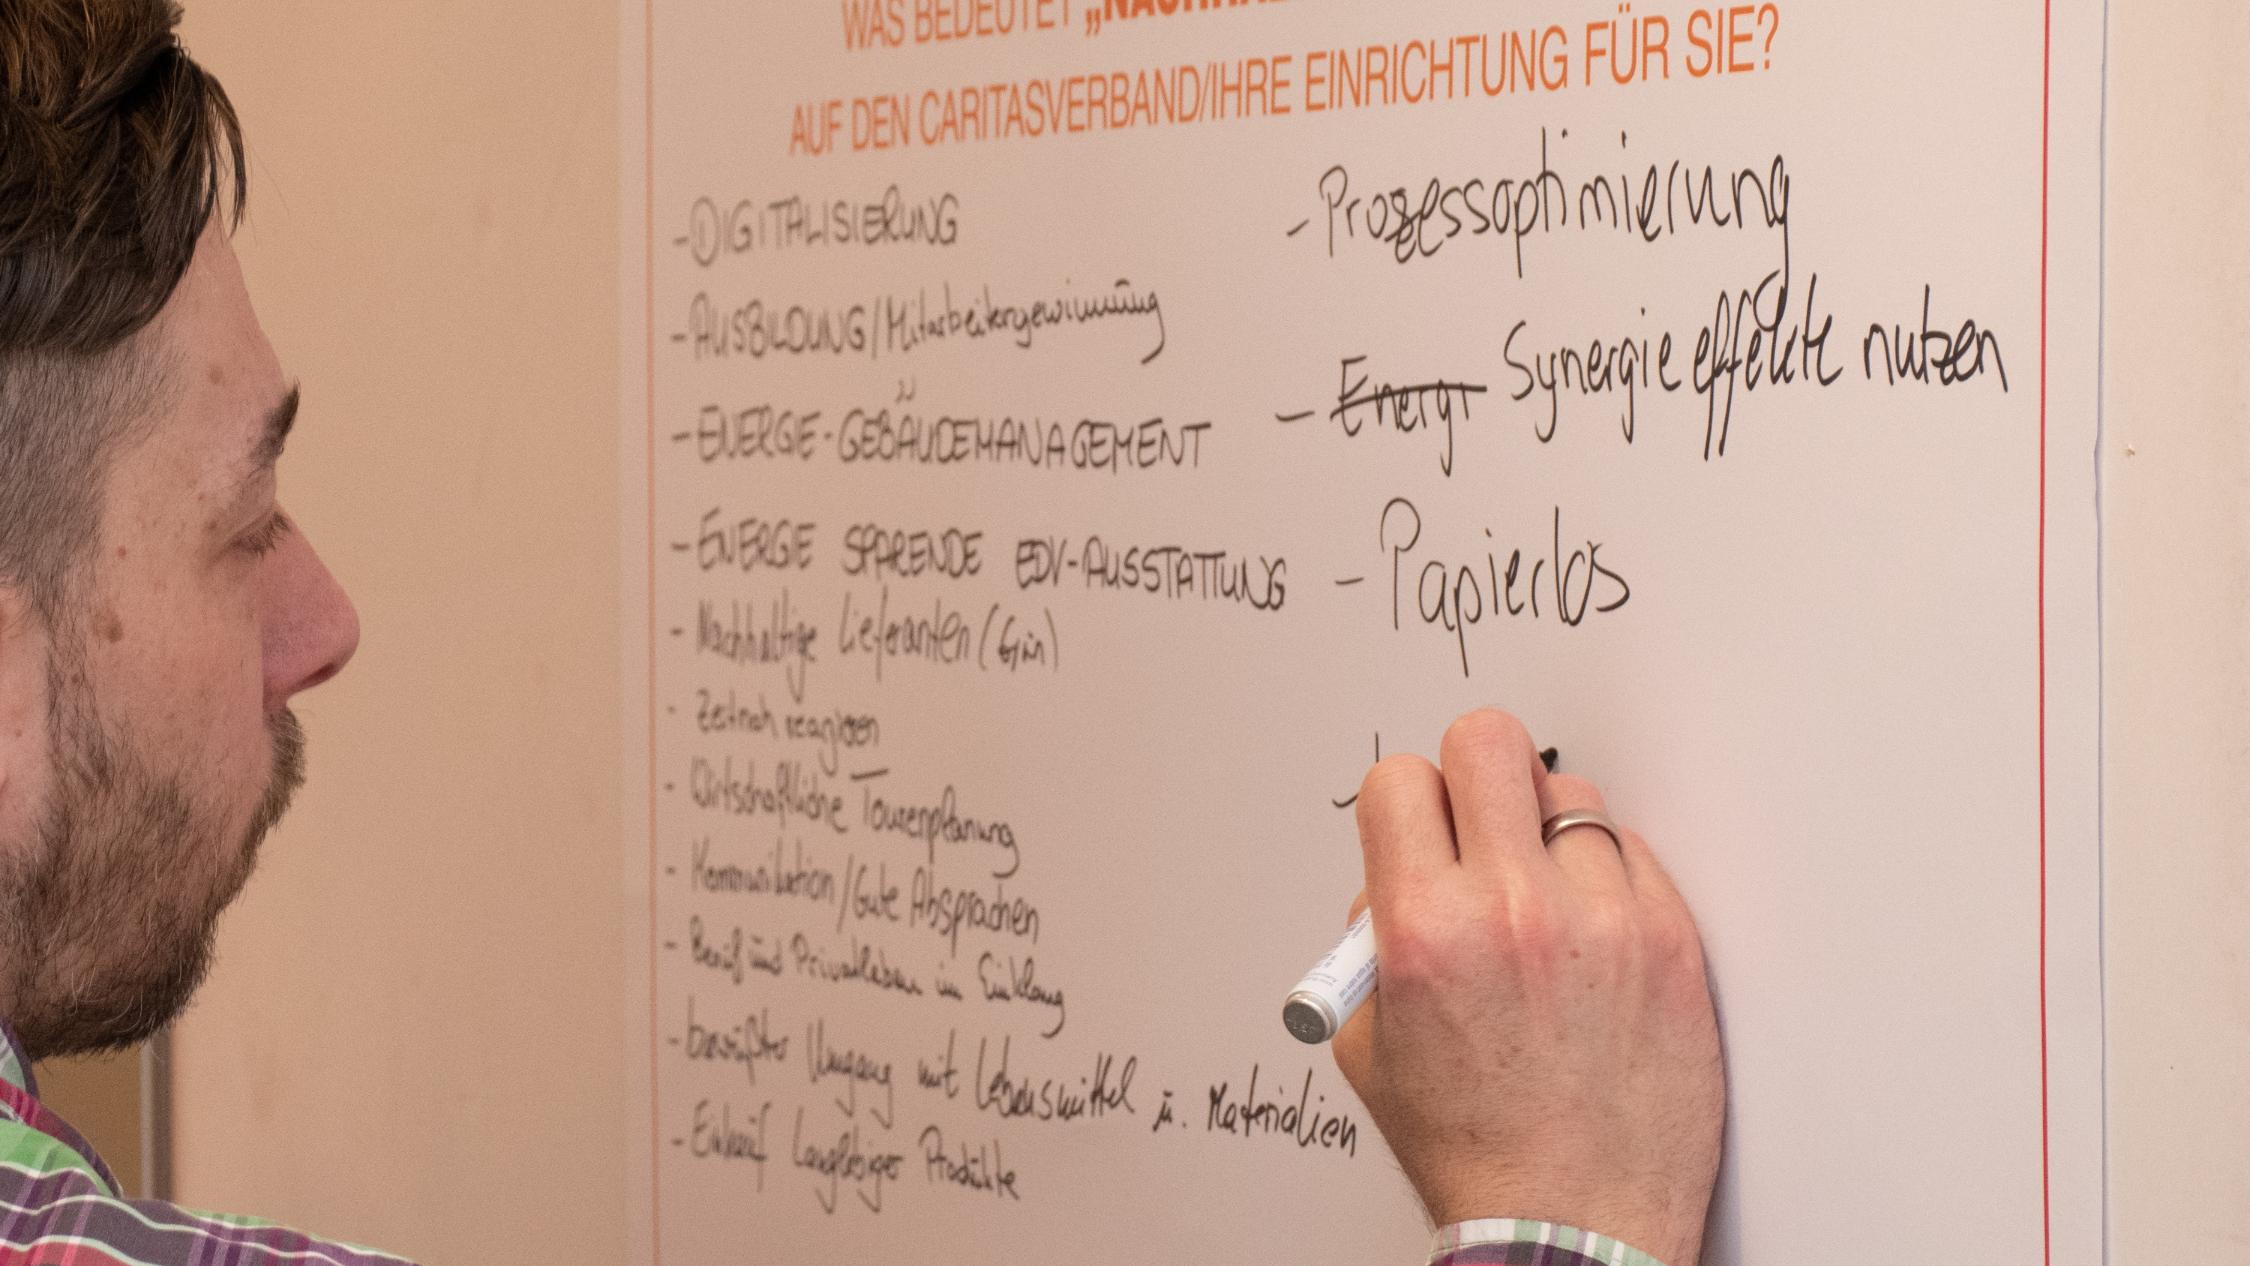 WAS BEDEUTET
AUF DEN CARITASVERBAND/IHRE EINRICHTUNG FÜR SIE?
- DIGITALISIERUNG
- AUSBILDUNG/Mitarbeitergewinnung
- ENERGIE-GEBÄUDEMANAGEMENT
- ENERGIE SPARENDE EDV-AUSSTATTUNG
- Nachhaltige Lieferanten
- Zeitnah reagieren
- Wirtschaftliche Tourenplanung
- Kommunikation/Gute Absprachen
- Beruf und Privatleben im Einklang
- bewußter Umgang mit Lebensmittel u. Materialien
- Einkauf langlebiger Produkte
- Prozessoptimierung
- Energi Synergieeffekte nutzen
- Papierlos